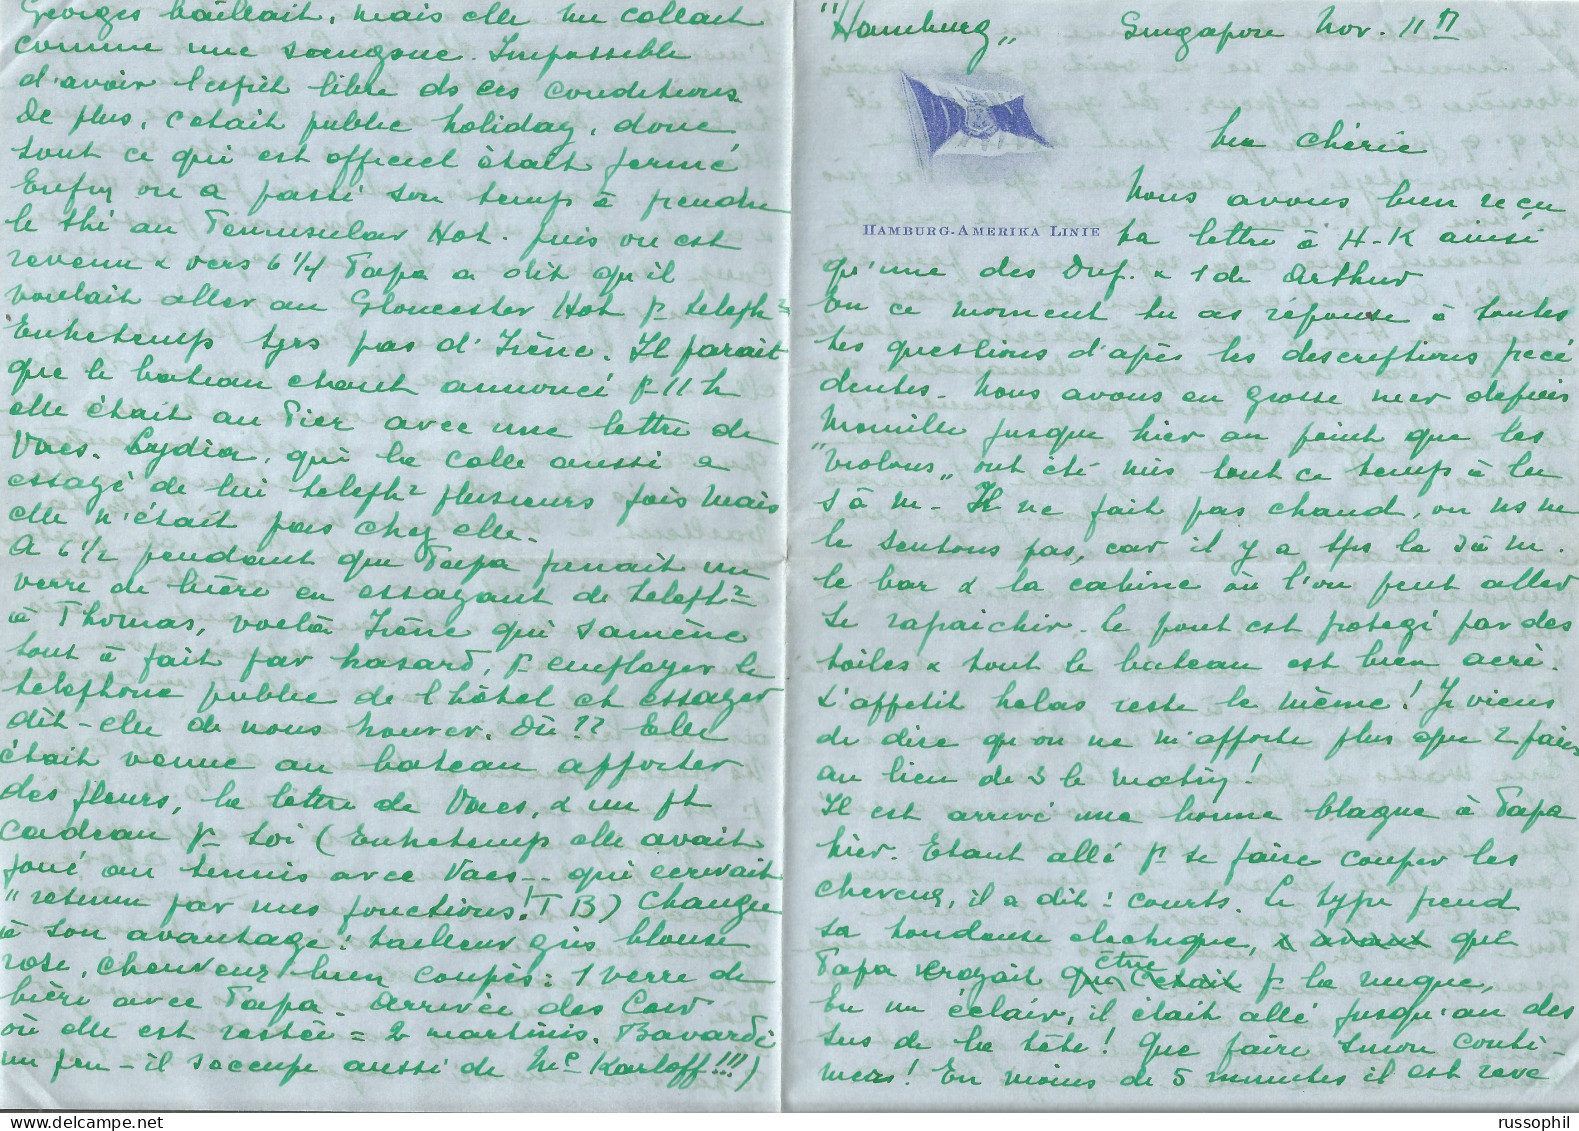 Georges bâillait, mais elle me collait
comme une sangsue. Impossible
d'avoir l'esprit libre ds ces conditions.
De plus, c'était public holiday, donc
tout ce qui est officiel était fermé
Enfin on a passé son temps à prendre
le thé au Penninsular Hot. puis on est
revenu & vers 6 1/4 Papa a dit qu'il
voulait aller au Gloucester Hot pr teleph
Entretemps tjrs pas d'Irène. Il parait
que le bateau étant annoncé pr 11 h
elle était au Pier avec une lettre de
Vaes. Lydia, qui la colle aussi a
essayé de lui teleph plusieurs fois mais
elle n'était pas chez elle.
A 6 1/2 pendant que Papa prenait un
verre de bière en essayant de teleph
à Thomas, voilà Irène qui s'amène
tout à fait par hasard, pr employer le
telephone public de l'hôtel et essayer
dit-elle de nous trouver. Où ?? Elle
était venue au bateau apporter
des fleurs, la lettre de Vaes, & un pt
cadeau pr toi (Entretemps elle avait
joué au tennis avec Vaes -- qui ecrivait
"retenu par mes fonctions! TB) Changée
à son avantage: tailleur gris blouse
rose, cheveux bien coupés: 1 verre de
bière avec Papa. Arrivée des Cow
où elle est restée = 2 martinis. Bavardé
un peu - il s'occupe aussi de Me Karloff!!!)
"Hamburg" Singapore Nov. 11
HAMBURG-AMERIKA LINIE
Ma Chérie
Nous avons bien reçu
ta lettre à H-K ainsi
qu'une des Duf. & 1 de Arthur
En ce moment tu as réponse à toutes
tes questions d'après les descriptions precé
dentes. Nous avons eu grosse mer depuis
Manille jusque hier au point que les
"violons" ont été mis tout ce temps à la
s à m. Il ne fait pas chaud, ou ns ne
le sentons pas, car il y a tjs la s à m.
le bar & la cabine où l'on peut aller
se rafraichir. Le pont est protegé par des
toiles & tout le bateau est bien aeré.
L'appetit helas reste le même! Je viens
de dire qu'on ne m'apporte plus que 2 pains
au lieu de 3 le matin!
Il est arrivé une bonne blague à Papa
hier. Etant allé pr se faire couper les
cheveux, il a dit: courts. Le type prend
sa tondeuse electrique, que
Papa croyait être pr la nuque,
En un éclair, il était allé jusqu'au des
sus de la tête! Que faire sinon conti-
nuer! En moins de 5 minutes il est reve
russophil